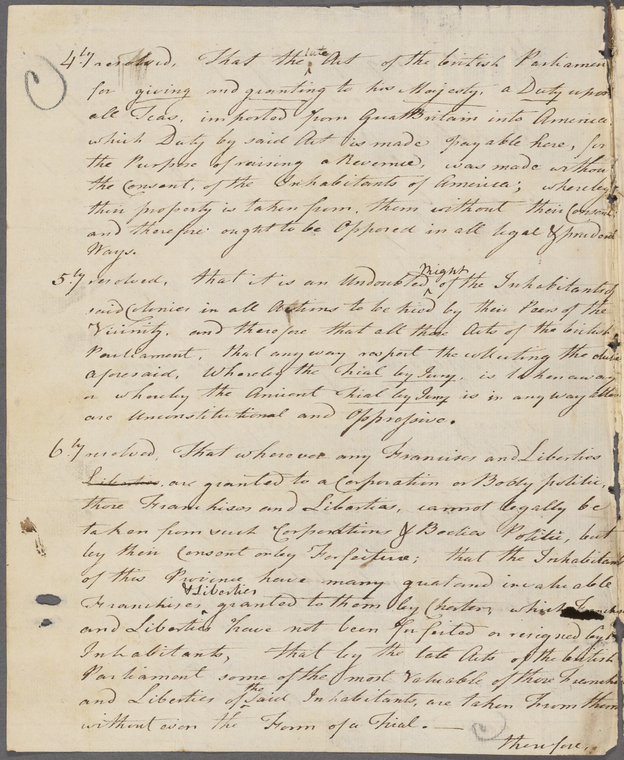 4ly resolved, That the late Act of the british Parliamen
for giving and granting to his Majesty, a Duty upon
all Teas, imported from Great Britain into America
which Duty by said Act is made payable here, for
the Purpose of raising a Revenue, was made withou
the Consent, of the Inhabitants of America; whereby
their property is taken from them without their Consent
and therefore ought to be Opposed in all legal & prudent
Ways.
5ly resolved, that it is an Undoubted Right of the Inhabitants of
said Colonies in all Actions to be tried by their Peers of the
Vicinity, and therefore that all those Acts of the british
Parliament, that any way respect the the
aforesaid, Whereby the Trial by Jury, is taken away
or whereby the Ancient Trial by Jury is in any way
are Unconstitutional and Oppressive.
6ly resolved, That wherever any Francises and Liberties
Liberties are granted to a Corporation or Boddy politic,
those Franchises and Liberties, cannot legally be
taken from such Corporations & Bodies Politic, but
by their Consent or by Forfeiture; that the Inhabitants
of this Province have many great and invaluable
Franchises & Liberties granted to them by Charter, which
and Liberties have not been Forfeited or resigned by
Inhabitants, that by the late Acts of the british
Parliament some of the most Valuable of those Franchis
and Liberties of the said Inhabitants, are taken from them
without even the Form of a Trial. —
therefore,